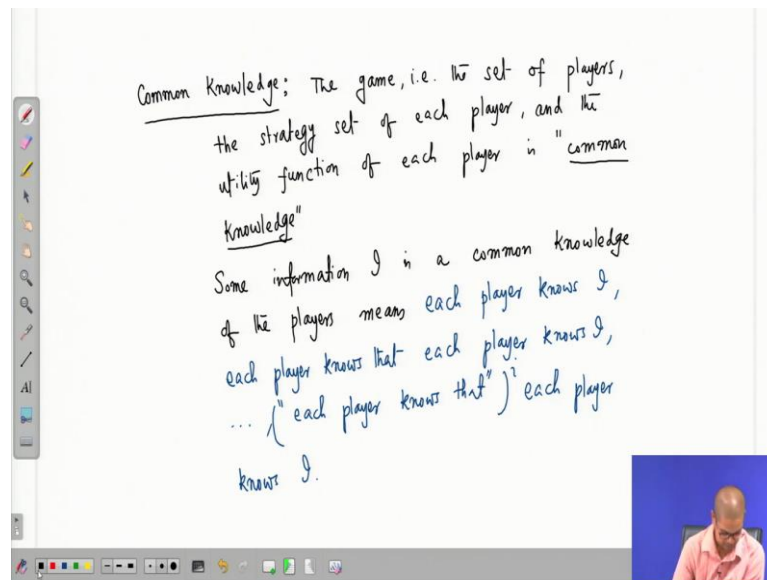 Common Knowledge: The game, i.e. the set of players,
the strategy set of each player, and the
utility function of each player is "common
knowledge"
Some information I is a common knowledge
of the players means each player knows I,
each player knows that each player knows I,
... ("each player knows that")ⁱ each player
knows I.
A